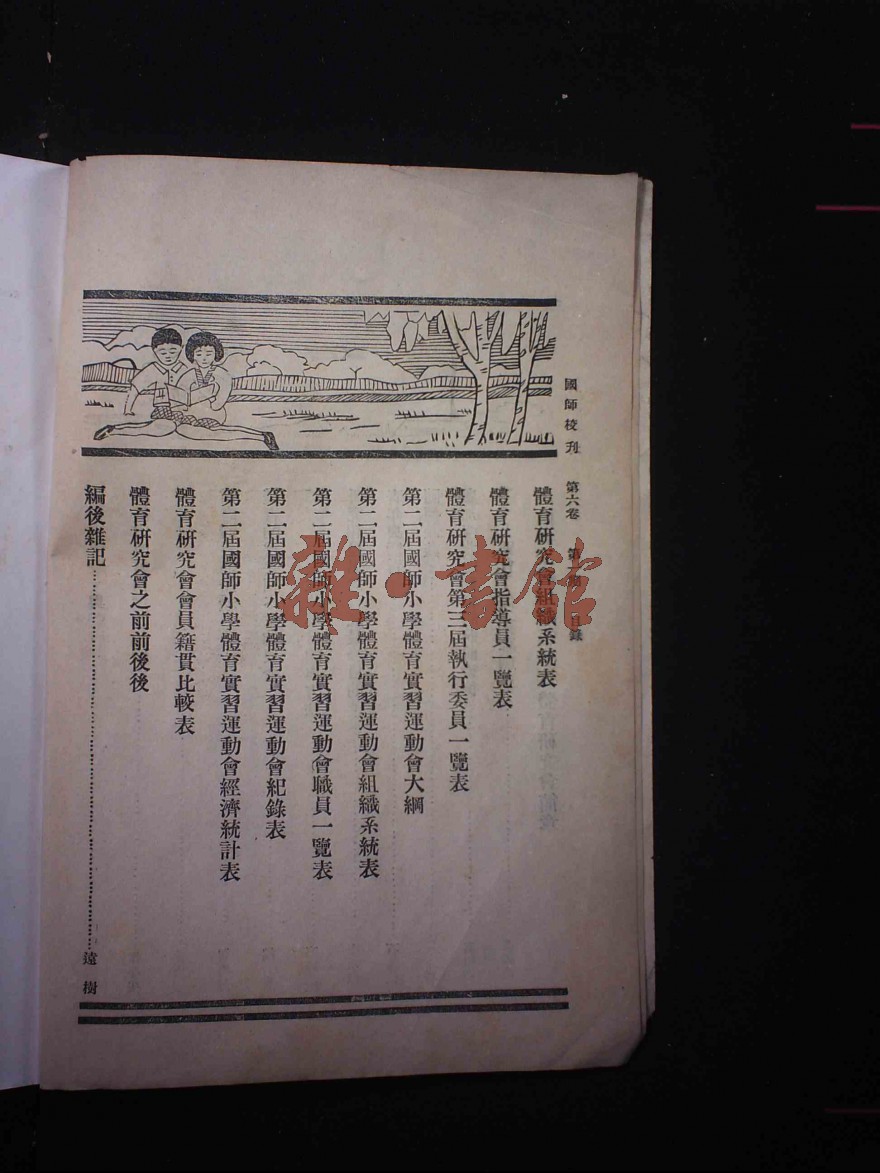 國師校刊 第六卷 第 期 目錄
體育研究會組織系統表
體育研究會指導員一覽表
體育研究會第三屆執行委員一覽表
第二屆國師小學體育實習運動會大綱
第二屆國師小學體育實習運動會組織系統表
第二屆國師小學體育實習運動會職員一覽表
第二屆國師小學體育實習運動會紀錄表
第二屆國師小學體育實習運動會經濟統計表
體育研究會會員籍貫比較表
體育研究會之前前後後
編後雜記……………………………………遠樹
雜·書館